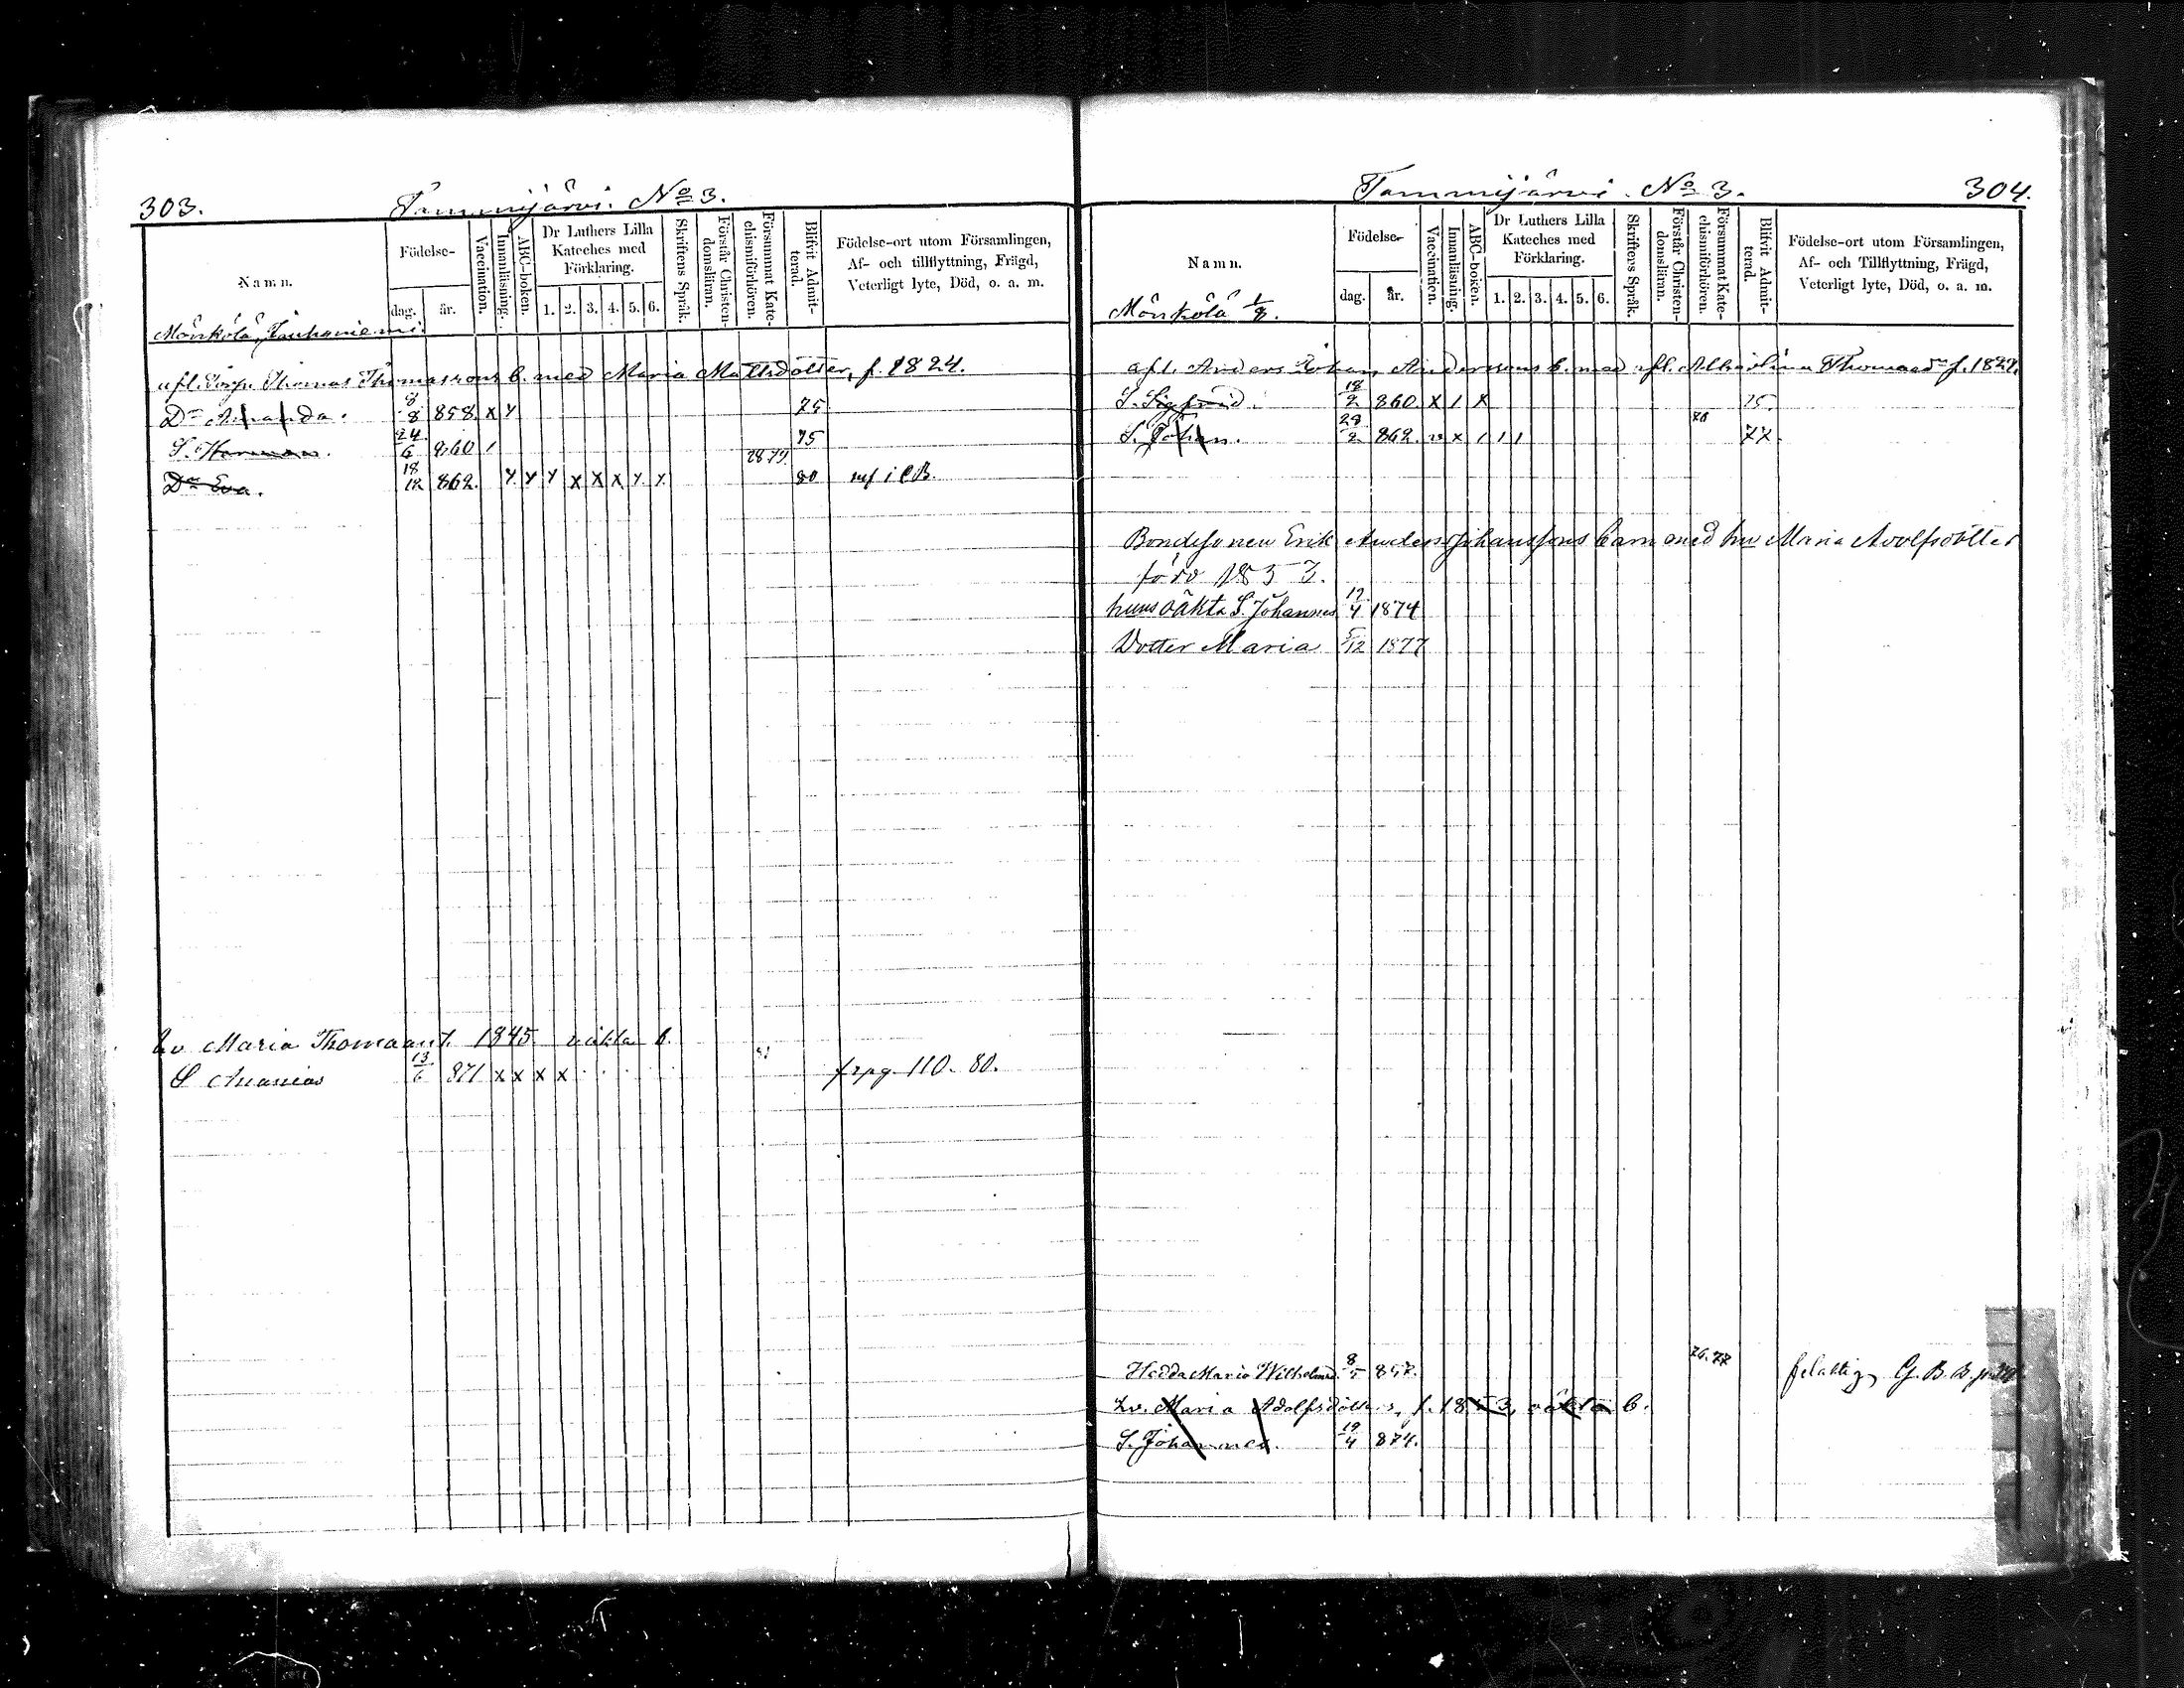 303.
Tammijärvi. No 3.
Namn.
Födelse-
dag.
år.
Vaccination.
Innanläsning.
ABC-boken.
Dr Luthers Lilla
Kateches med
Förklaring.
1. 2. 3. 4. 5. 6.
Skriftens Språk.
Förstår Christen-
domsläran.
Försummat Kate-
chismiförhören.
Blifvit Admit-
terad.
Födelse-ort utom Församlingen,
Af- och tillflyttning, Frägd,
Veterligt lyte, Död, o. a. m.
Mörskölä
afl. Thomas Thomassons b. med Maria Mattsdotter, f. 1824.
Dr Amanda. 8/8 858. x y 75.
S. Herman. 24/6 860 / 75
Dr Eva. 18/12 862. y y y x x x y y. 80 i CB.
Maria Thomasd. 1845. oäkta b.
S Ananias 13/6 871 x x x x 110. 80.
Tammijärvi. No 3.
304.
Namn.
Mörskölä 1/8.
Födelse-
dag.
år.
Vaccination.
Innanläsning.
ABC-boken.
Dr Luthers Lilla
Kateches med
Förklaring.
1. 2. 3. 4. 5. 6.
Skriftens Språk.
Förstår Christen-
domsläran.
Försummat Kate-
chismiförhören.
Blifvit Admit-
terad.
Födelse-ort utom Församlingen,
Af- och Tillflyttning, Frägd,
Veterligt lyte, Död, o. a. m.
afl. Anders Johan Anderssons b. med afl. Albertina
S. Sigfrid. 18/2 860. x / x 75.
S. Johan. 862. x / / / 77.
Bondesonen Erik Anders Johanssons barn med hu Maria Adolfsdotter
född 1853.
hens oäkta S. Johannes 19/4 1874
Dotter Maria 5/12 1877
Hedda Maria 8/5 857. 76.77 G. B. B.
Maria Adolfsdotters, f. 1853, oäkta b.
S. Johannes. 19/4 874.